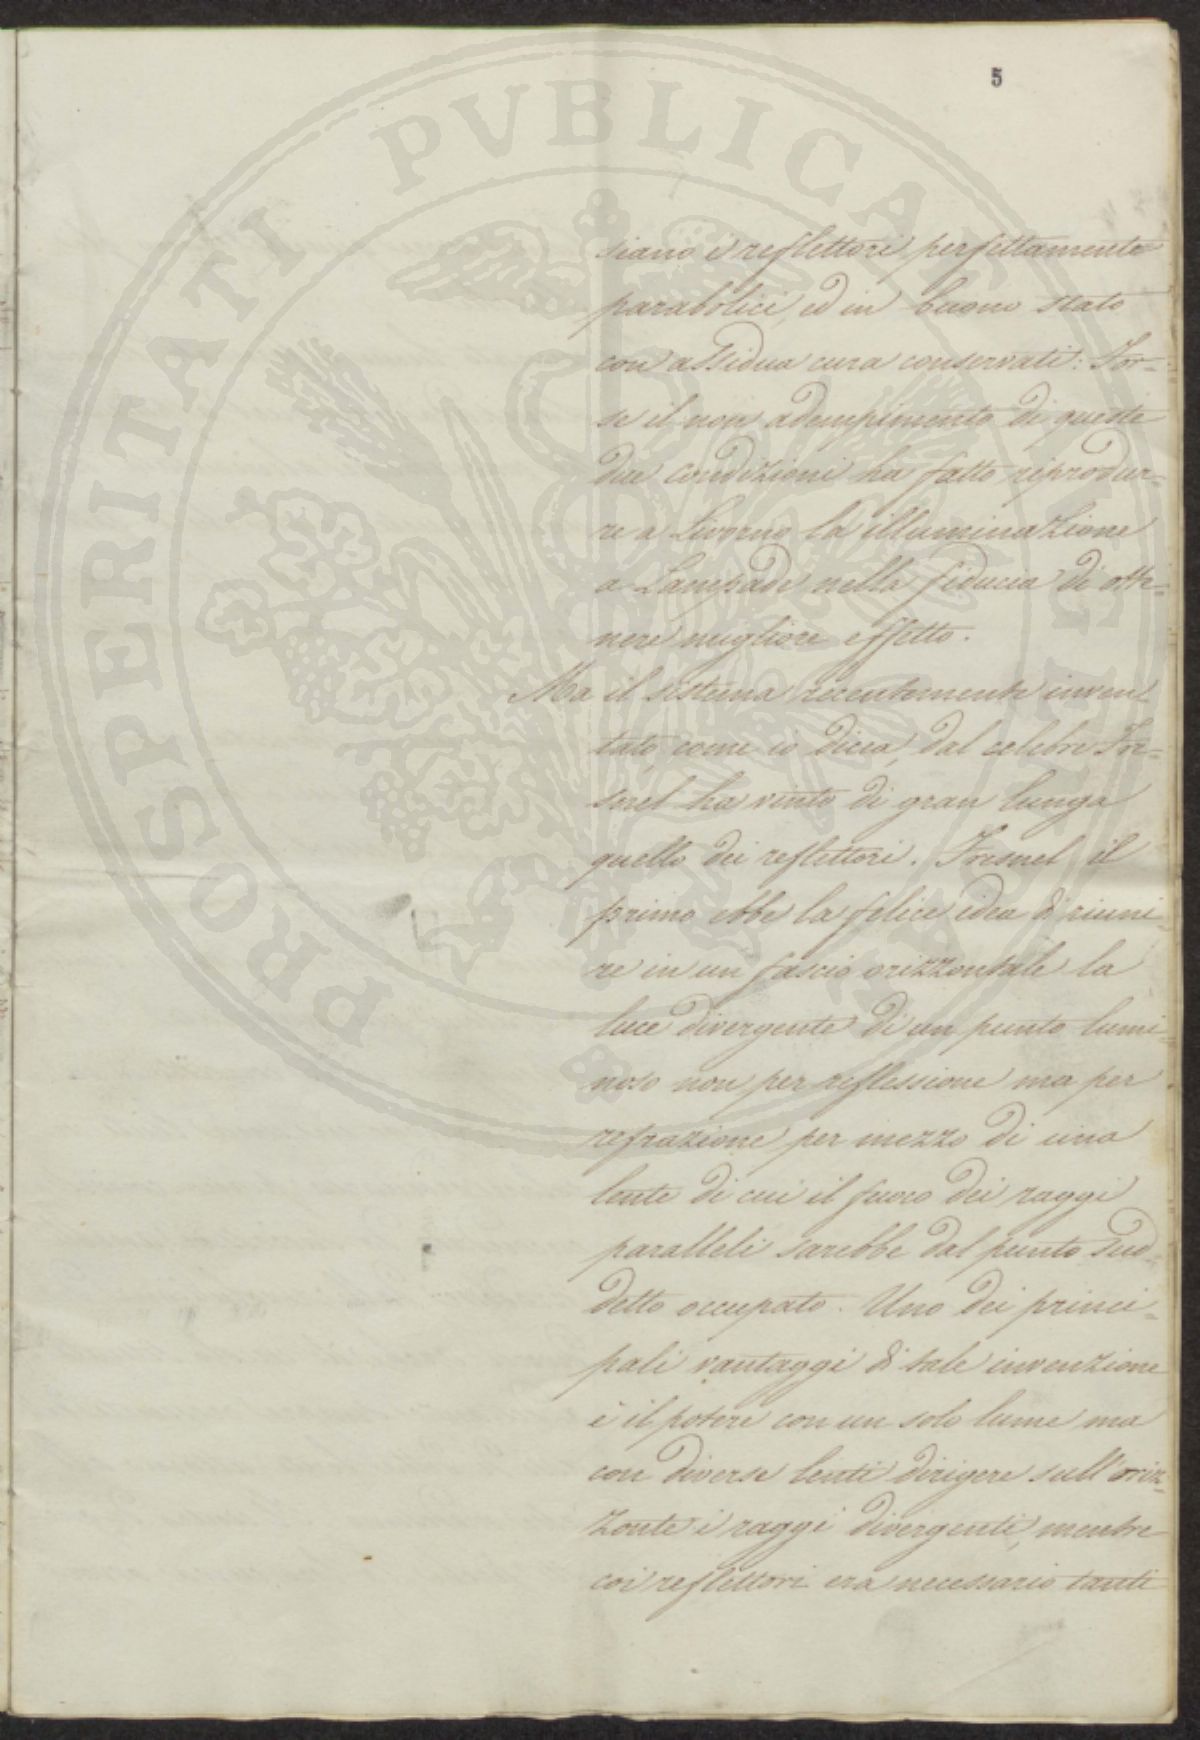 5
PROSPERITATI PVBLICAE AVGENDAE
siano i reflettori perfettamente
parabolici, ed in buono stato
con assidua cura conservati: For=
se il non adempimento di queste
due condizioni ha fatto riprodur=
re a Livorno la illuminazione
a Lampade nella fiducia di otte=
nere migliore effetto.
Ma il sistema recentemente inven
tato, come io dicea, dal celebre Fre=
snel ha vinto di gran lunga
quello dei reflettori. Fresnel il
primo ebbe la felice idea di riuni=
re in un fascio orizzontale la
luce divergente di un punto lumi=
noso non per reflessione ma per
refrazione per mezzo di una
lente di cui il fuoco dei raggi
paralleli sarebbe dal punto sud=
detto occupato. Uno dei princi=
pali vantaggi di tale invenzione
è il potere con un solo lume ma
con diverse lenti dirigere sull'oriz=
zonte i raggi divergenti, mentre
coi reflettori era necessario tanti